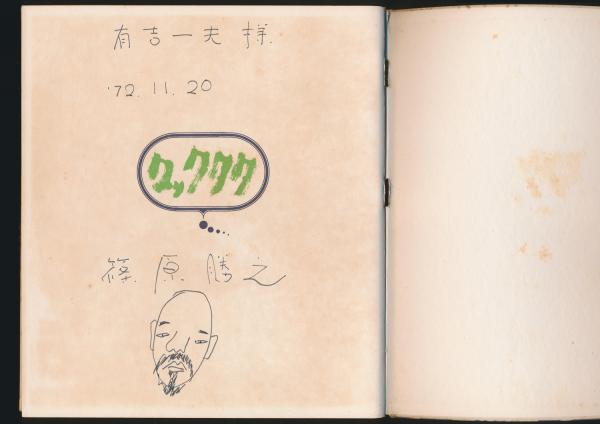 有吉一夫 様.
'72.11.20
クックタク
篠原勝之